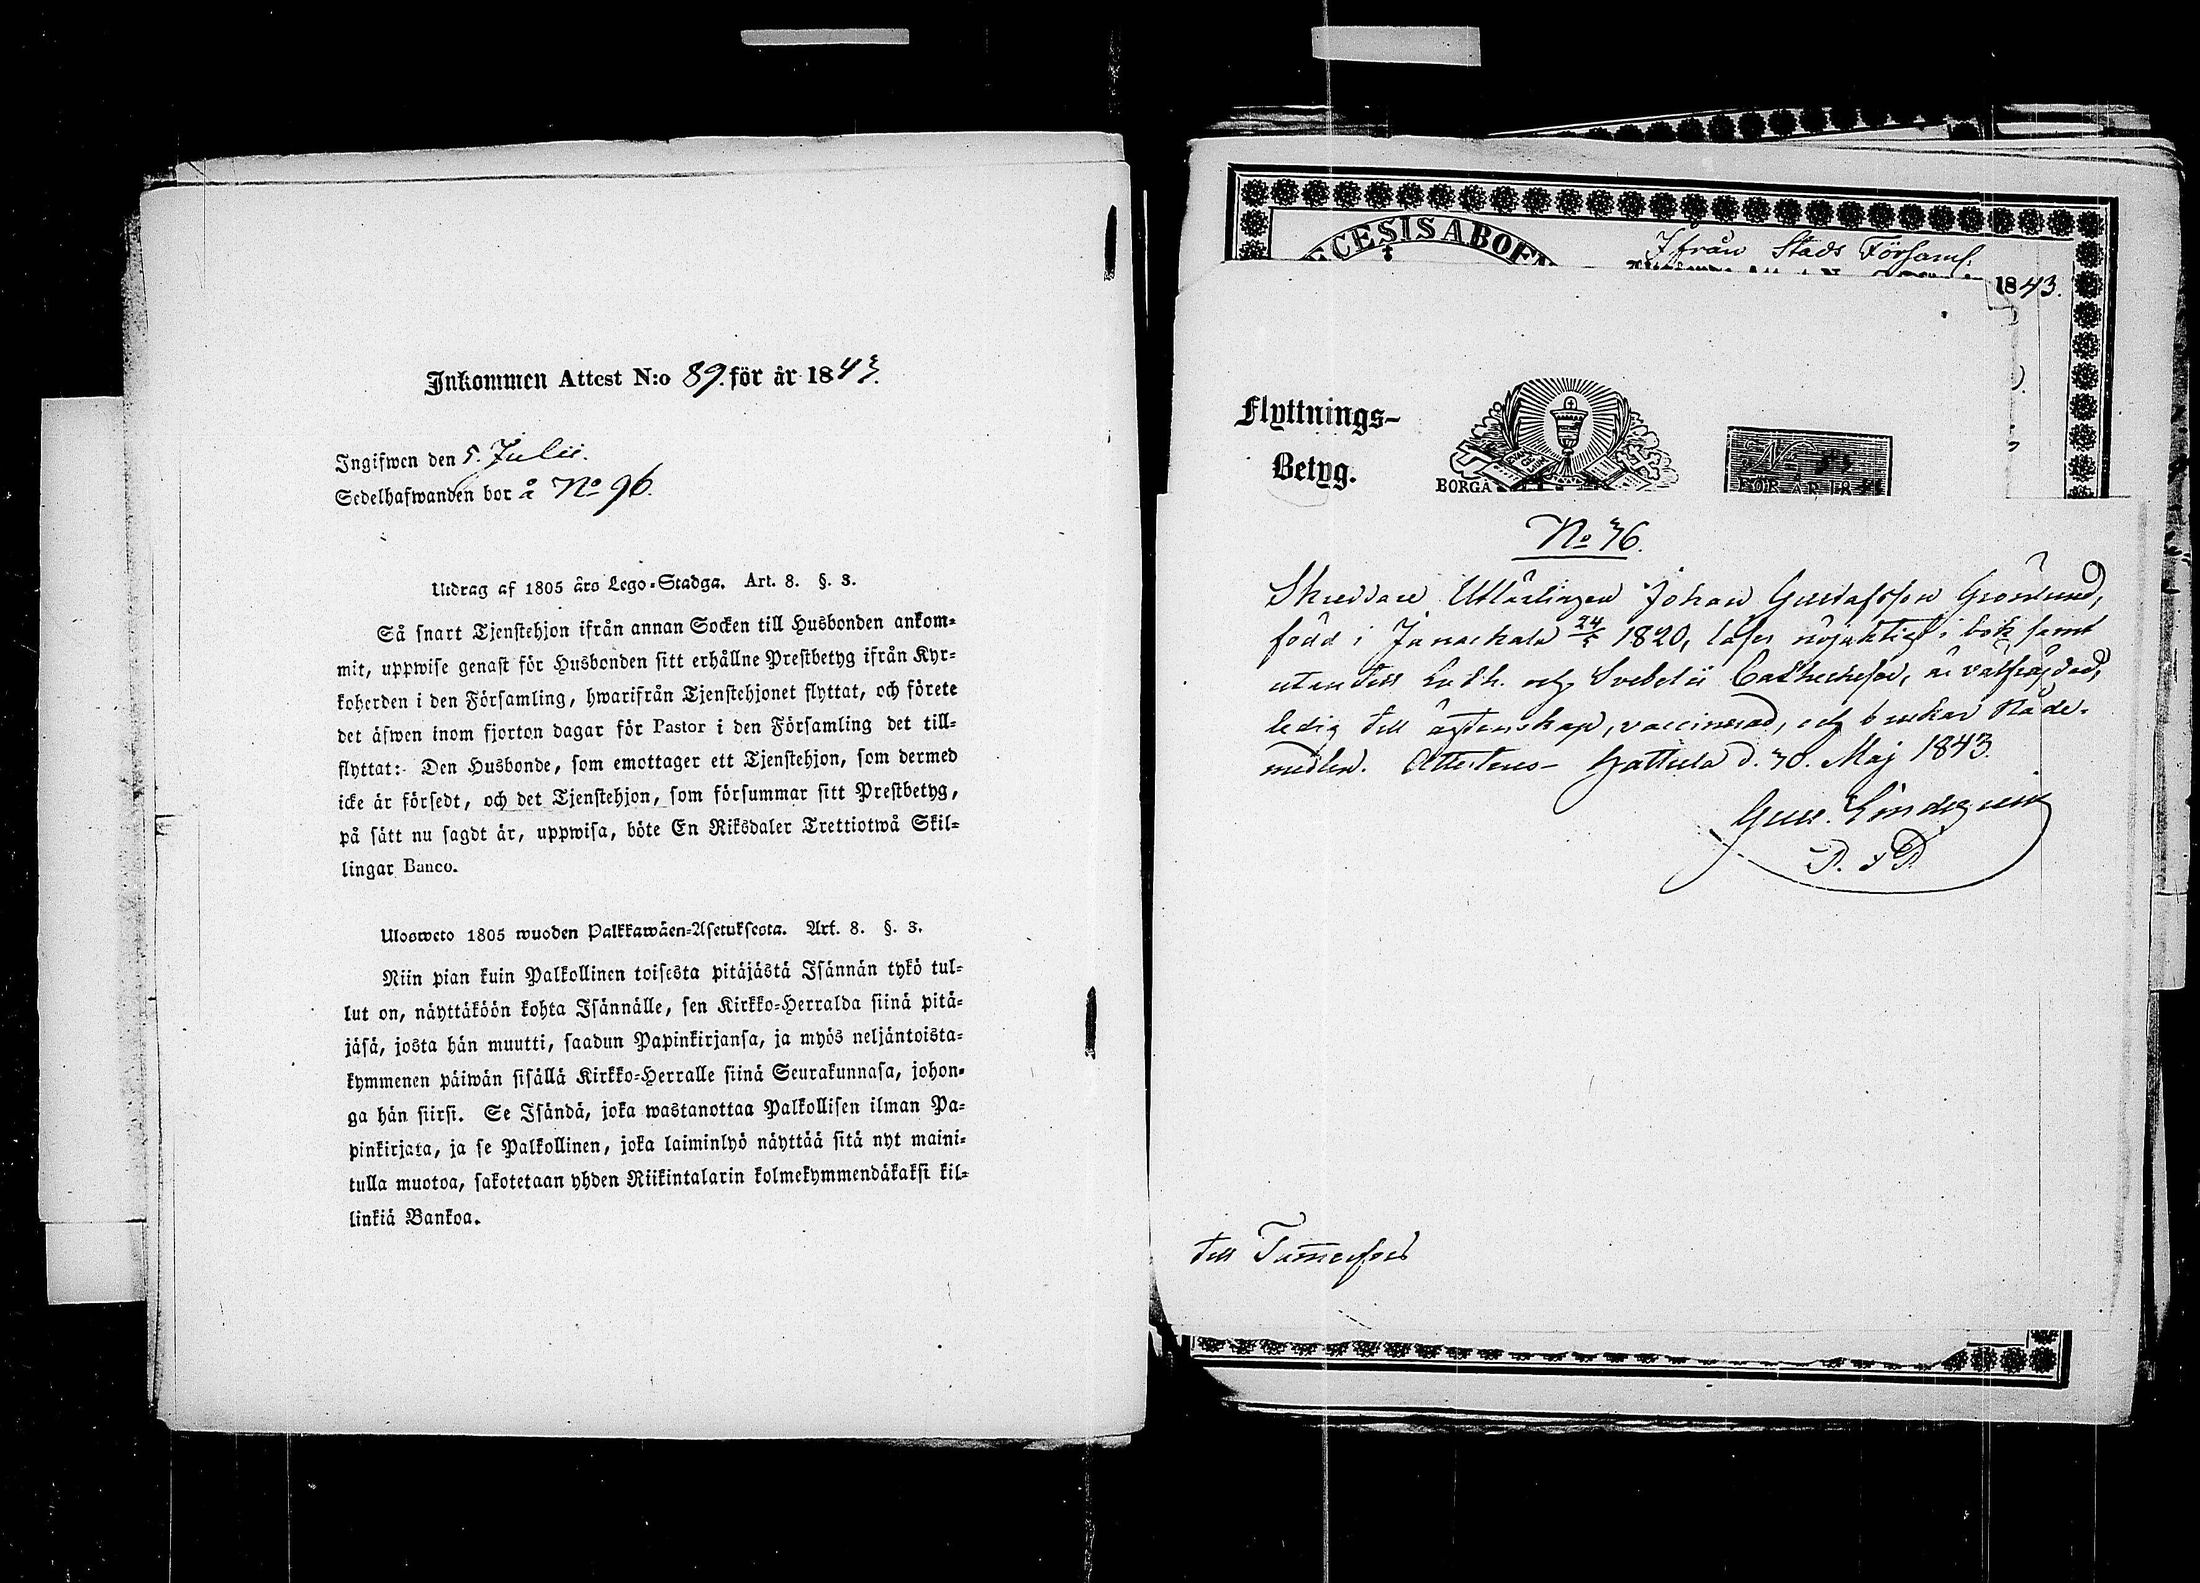 Inkommen Attest N:o 89. för år 1843.
Ingifwen den 5. Julii.
Sedelhafwanden bor å No 96.
Utdrag af 1805 års Lego-Stadga. Art. 8. §. 3.
Så snart Tjenstehjon ifrån annan Socken till Husbonden ankom-
mit, uppwise genast för Husbonden sitt erhållne Prestbetyg ifrån Kyr-
koherden i den Församling, hwarifrån Tjenstehjonet flyttat, och förete
det äfwen inom fjorton dagar för Pastor i den Församling det till-
flyttat: Den Husbonde, som emottager ett Tjenstehjon, som dermed
icke är försedt, och det Tjenstehjon, som försummar sitt Prestbetyg,
på sätt nu sagdt är, uppwisa, böte En Riksdaler Trettiotwå Skil-
lingar Banco.
Ulosweto 1805 wuoden Palkkawäen-Asetuksesta. Art. 8. §. 3.
Niin pian kuin Palkollinen toisesta pitäjästä Isännän tykö tul-
lut on, näyttäköön kohta Isännälle, sen Kirkko-Herralda siinä pitä-
jäsä, josta hän muutti, saadun Papinkirjansa, ja myös neljäntoista-
kymmenen päiwän sisällä Kirkko-Herralle siinä Seurakunnasa, johon-
ga hän siirsi. Se Isändä, joka wastanottaa Palkollisen ilman Pa-
pinkirjata, ja se Palkollinen, joka laiminlyö näyttää sitä nyt maini-
tulla muotoa, sakotetaan yhden Riikintalarin kolmekymmendäkaksi kil-
linkiä Bankoa.
ECESIS ABOEN
Ifrån Stads Församl.
1843.
Flyttnings-
Betyg.
BORGÅ
No
FÖR ÅR 18
No 36.
Skreddare Utlärlingen Johan Gustafsson Grönlund,
född i Janackala 24 1820, läser nöjaktigt i bok samt
utantill Luth. och Svebelii Cathecheser, är välfräjdad,
ledig till äktenskap, vaccinerad, och brukar Nåde-
medlen. Attesteras Hattula d. 30. Maj 1843.
Gust. Lindegren
till Tammerfors